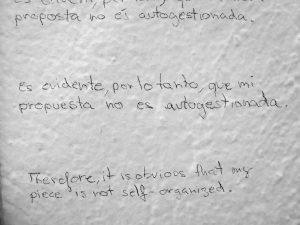 proposta no és autogestionada.
es evidente, por lo tanto, que mi
propuesta no es autogestionada.
Therefore, it is obvious that my
piece is not self-organized.